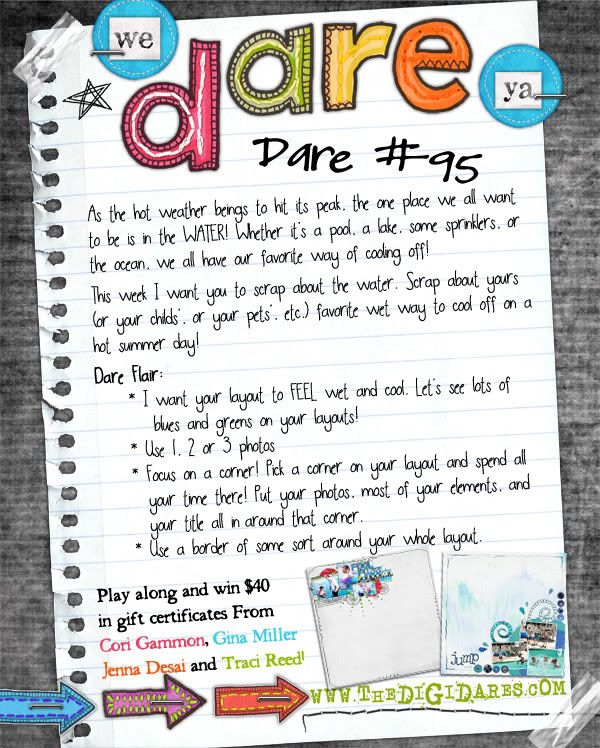 we dare ya
Dare #95
As the hot weather beings to hit its peak, the one place we all want
to be is in the WATER! Whether it's a pool, a lake, some sprinklers, or
the ocean, we all have our favorite way of cooling off!
This week I want you to scrap about the water. Scrap about yours
(or your childs', or your pets', etc.) favorite wet way to cool off on a
hot summer day!
Dare Flair:
* I want your layout to FEEL wet and cool. Let's see lots of
blues and greens on your layouts!
* Use 1, 2 or 3 photos
* Focus on a corner! Pick a corner on your layout and spend all
your time there! Put your photos, most of your elements, and
your title all in around that corner.
* Use a border of some sort around your whole layout.
Play along and win $40
in gift certificates From
Cori Gammon, Gina Miller
Jenna Desai and Traci Reed!
jump
www.TheDigiDares.com